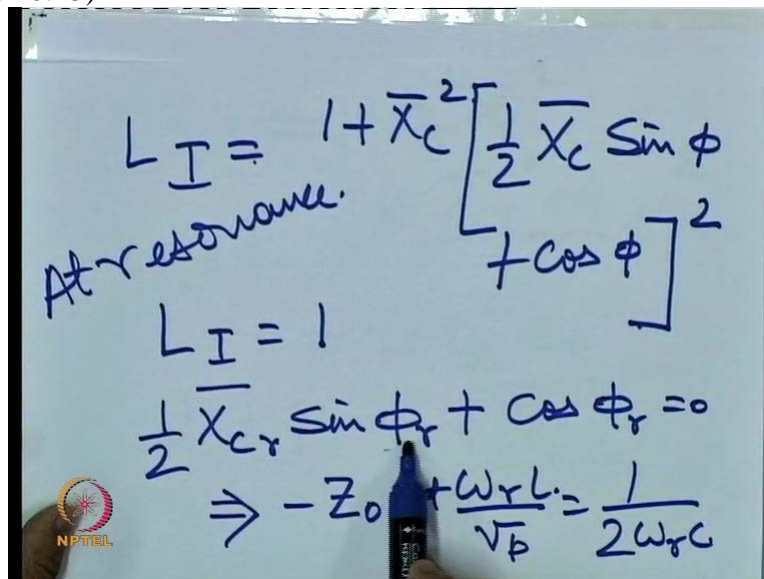 L_I = 1 + X̅_c² [ 1/2 X̅_c Sin φ
+ cos φ ]²
At resonance.
L_I = 1
1/2 X̅_cr sin φ_r + cos φ_r = 0
⇒ - Z_0 + ω_r l / v_p = 1 / 2ω_r c
NPTEL